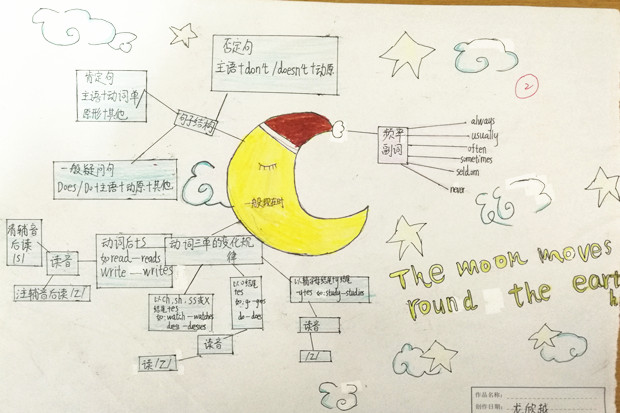 否定句
主语+don't/doesn't+动原
肯定句
主语+动词单/
原形+其他
句子结构
②
频率
副词
always
usually
often
sometimes
seldom
never
一般疑问句
Does/Do+主语+动原+其他
一般现在时
清辅音
后读
/s/
读音
浊辅音后读/z/
动词后+s
如read—reads
write—writes
动词三单的变化规
律
以ch、sh、ss或x
结尾+es
如:watch—watches
读音
读/z/
以o结尾
+es
如:go—goes
do—does
如:study—studies
读音
/z/
The moon moves
round the eart
作品名称:
创作日期: